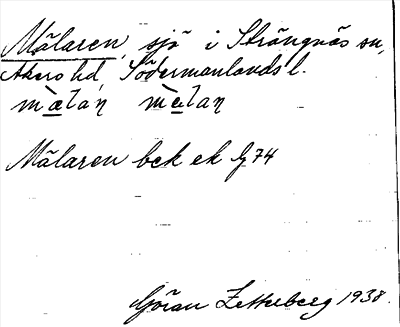 Mälaren, sjö i Strängnäs sn,
Åkers hd, Södermanlands l.
Mälaren bek ek bg 74
Göran Zetterberg 1938.